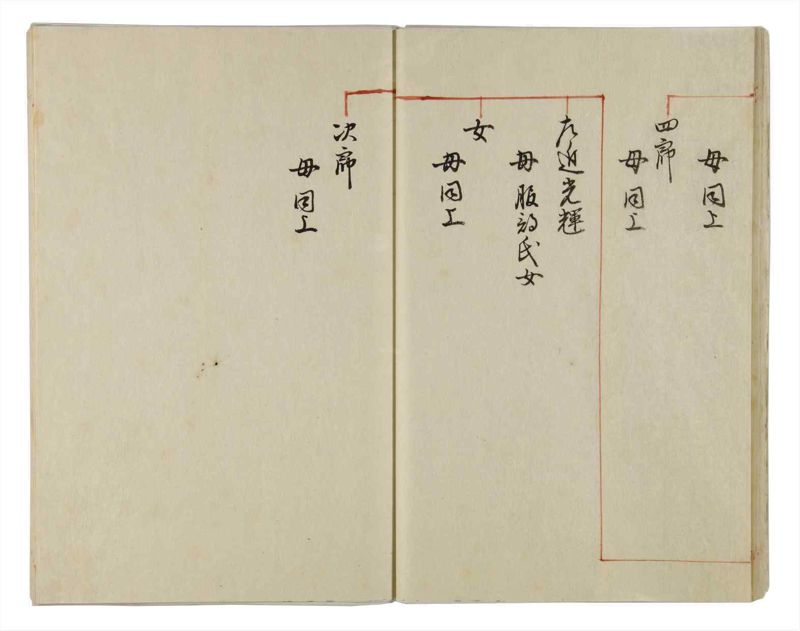 母同上
四郎
母同上
左近光輝
母服部氏女
女
母同上
次郎
母同上